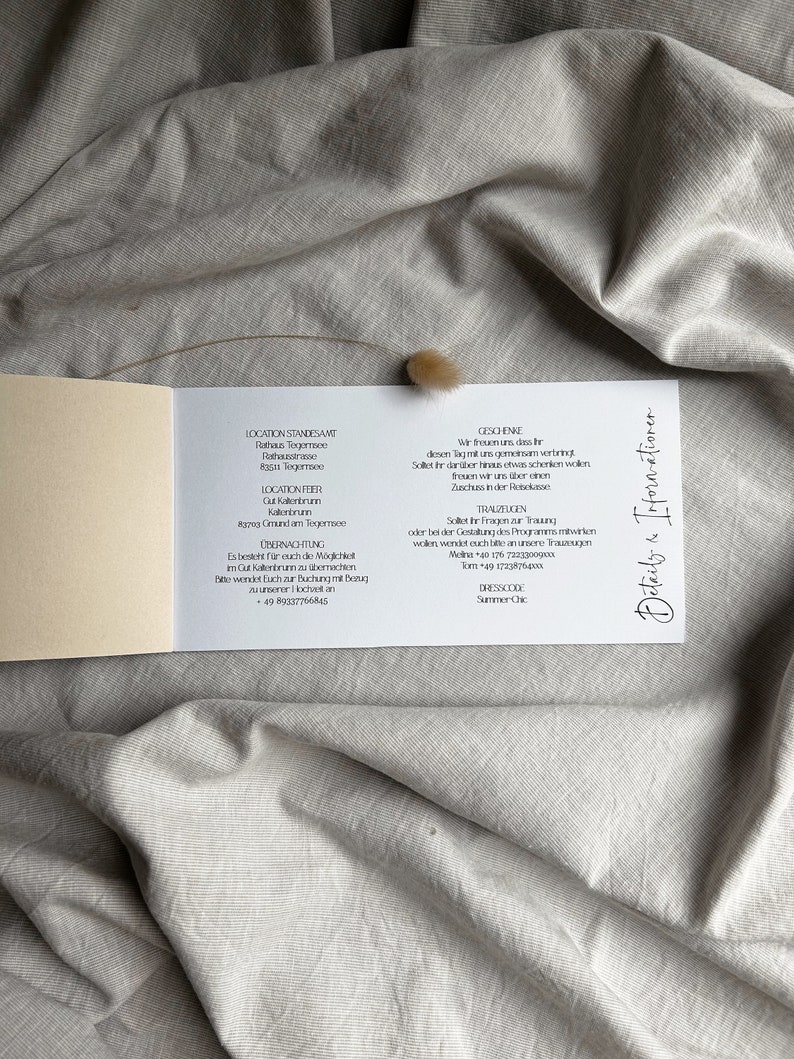 LOCATION STANDESAMT
Rathaus Tegernsee
Rathausstrasse
83511 Tegernsee
LOCATION FEIER
Gut Kaltenbrunn
Kaltenbrunn
83703 Gmund am Tegernsee
ÜBERNACHTUNG
Es besteht für euch die Möglichkeit
im Gut Kaltenbrunn zu übernachten.
Bitte wendet Euch zur Buchung mit Bezug
zu unserer Hochzeit an
+ 49 89337766845
GESCHENKE
Wir freuen uns, dass Ihr
diesen Tag mit uns gemeinsam verbringt.
Solltet ihr darüber hinaus etwas schenken wollen,
freuen wir uns über einen
Zuschuss in der Reisekasse.
TRAUZEUGEN
Solltet ihr Fragen zur Trauung
oder bei der Gestaltung des Programms mitwirken
wollen, wendet euch bitte an unsere Trauzeugen
Melina: +40 176 72233009xxx
Tom: +49 17238764xxx
DRESSCODE
Summer-Chic
Details & Informationen